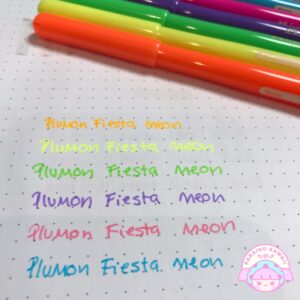 Plumon Fiesta neon
Plumon Fiesta neon
Plumon Fiesta neon
Plumon Fiesta neon
Plumon Fiesta neon
Plumon Fiesta neon
PARAISO KAWAII